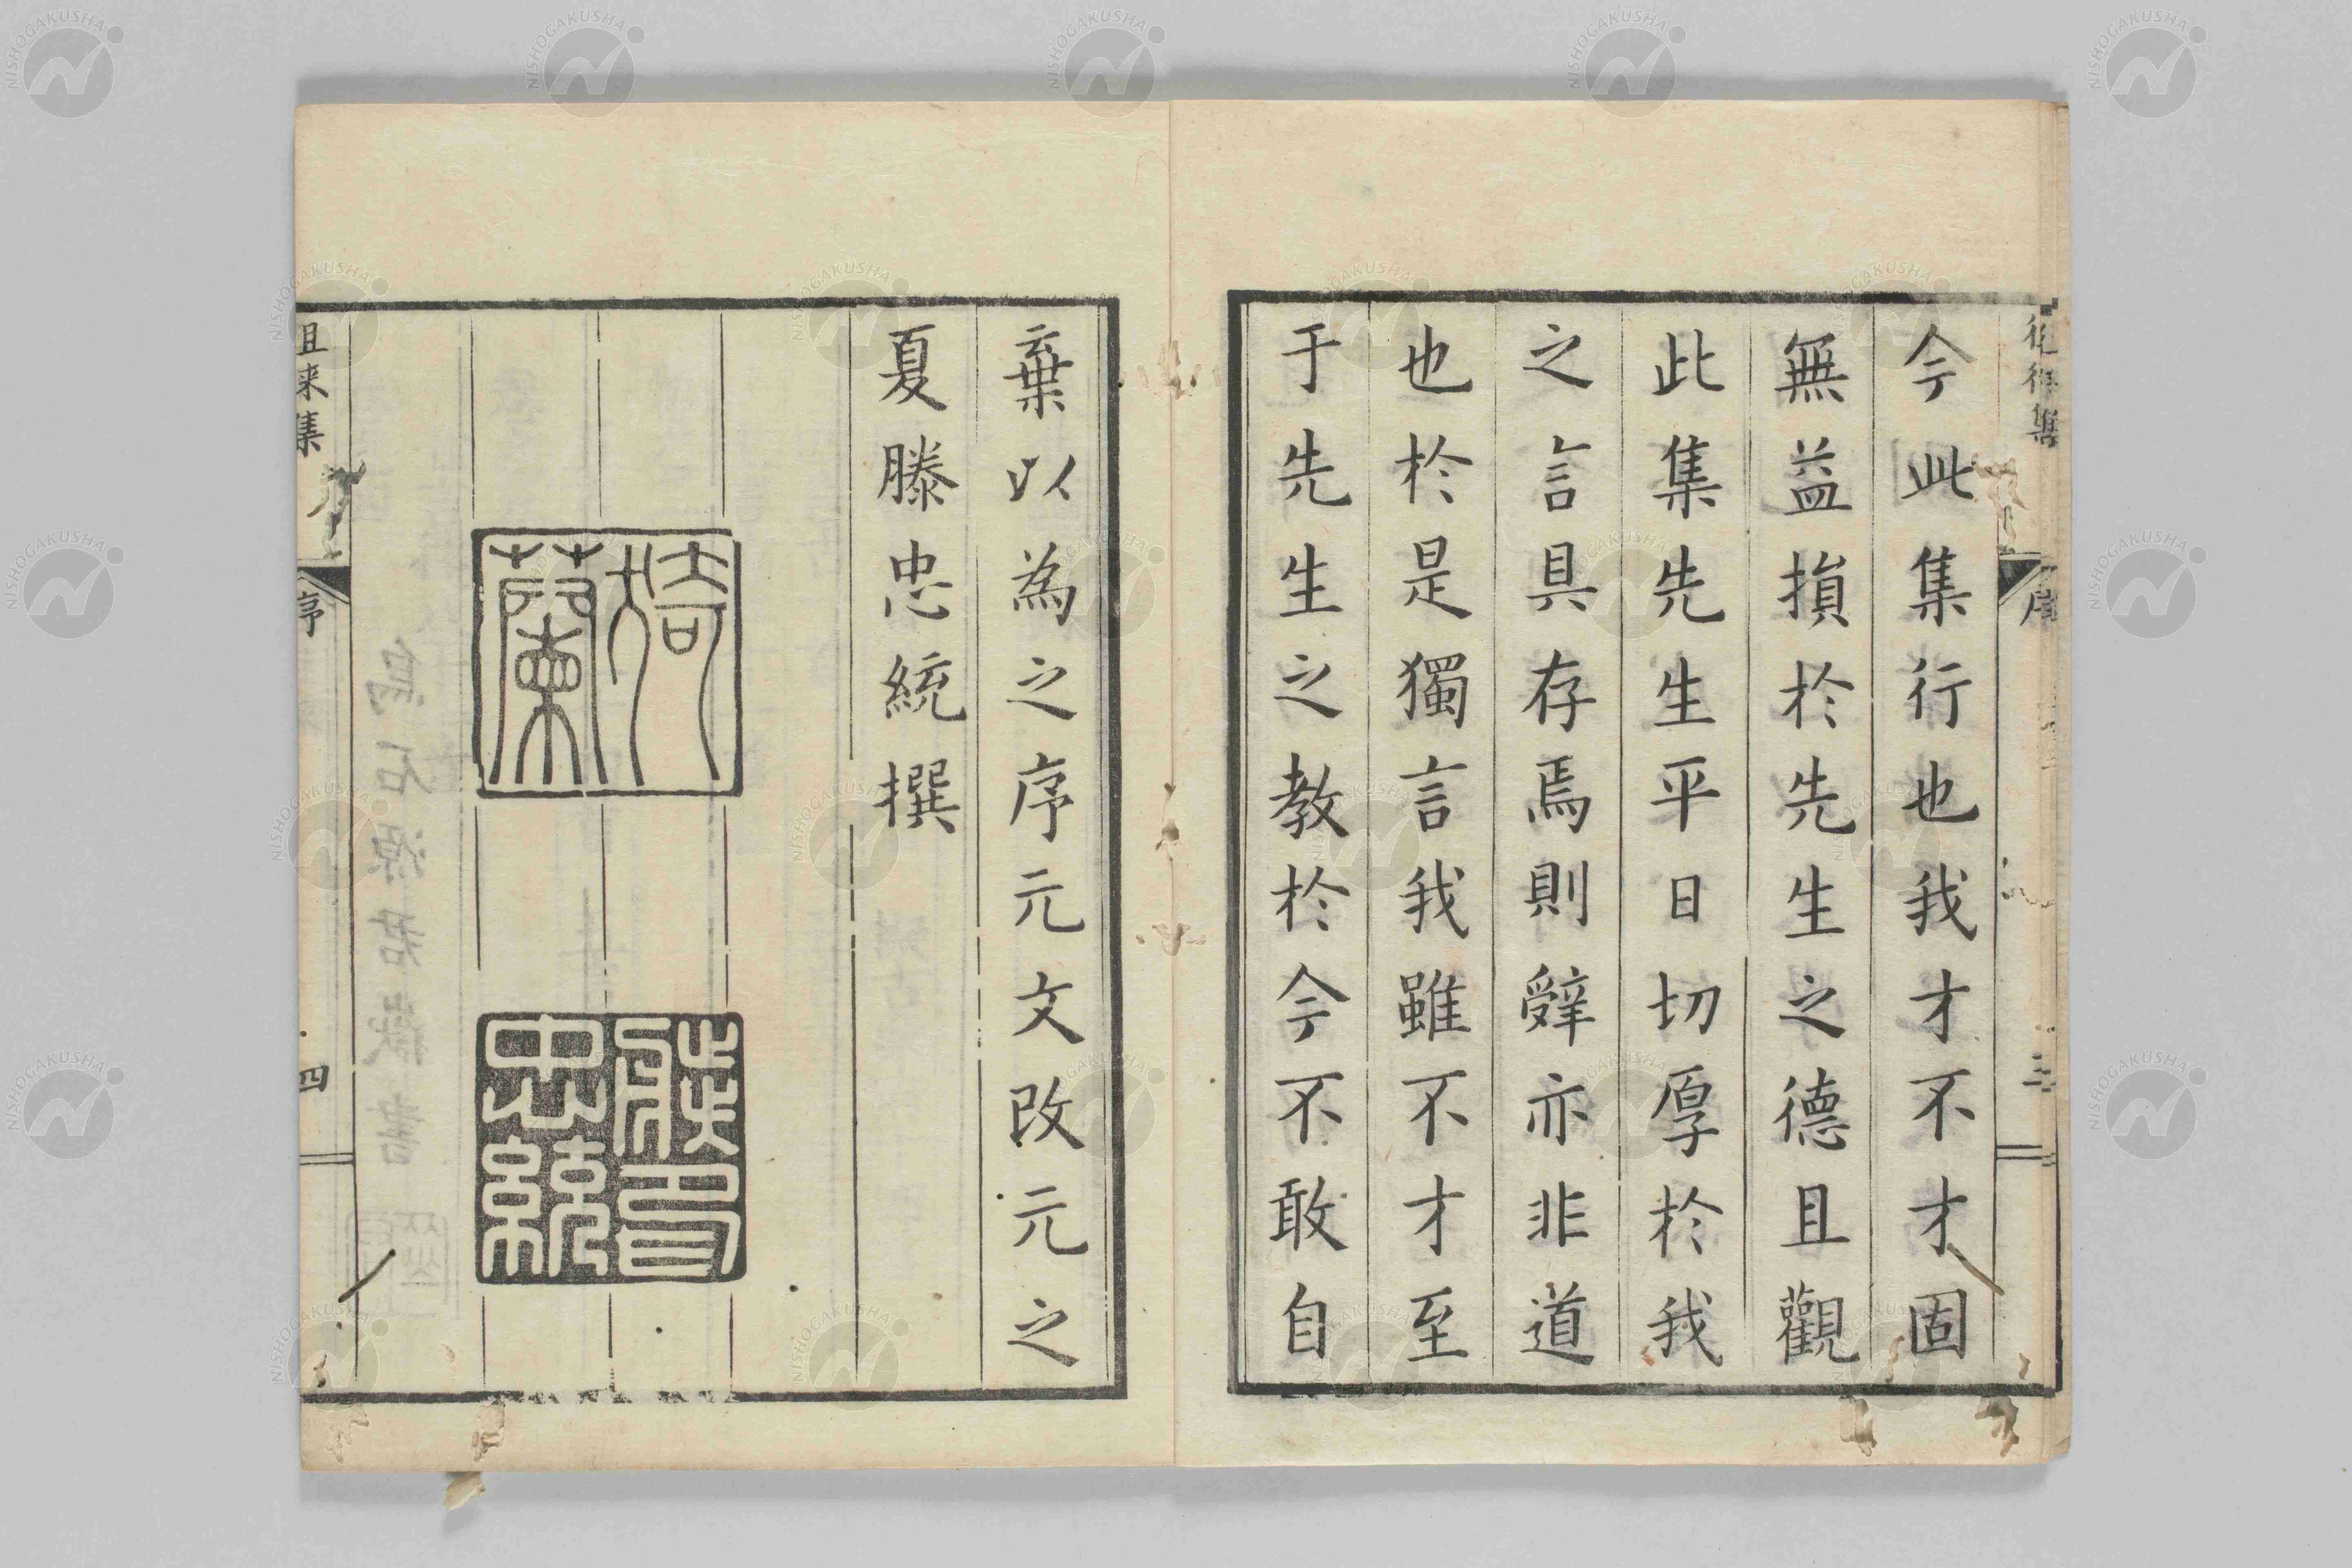 今此集行也我才不才固
無益損於先生之德且觀
此集先生平日切厚於我
之言具存焉則辭亦非道
也於是獨言我雖不才至
于先生之教於今不敢自
棄以為之序元文改元之
夏滕忠統撰
猗蘭
滕印忠統
徂來集
序
四
NISHOGAKUSHA